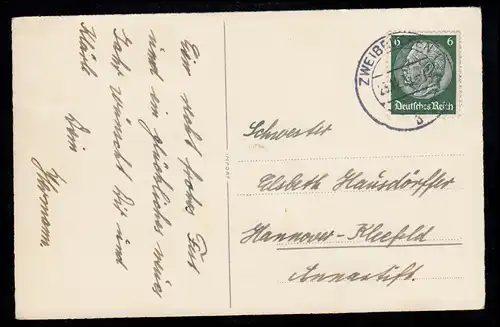 Ein recht frohes Fest
und ein glückliches neues
Jahr wünscht Dir und
Klärli
Dein
Hermann
IMPORT
ZWEIBRÜCKEN
6 6
Deutsches Reich
Schwester
Elsbeth Hausdörffer
Hannover-Kleefeld
Annastift.